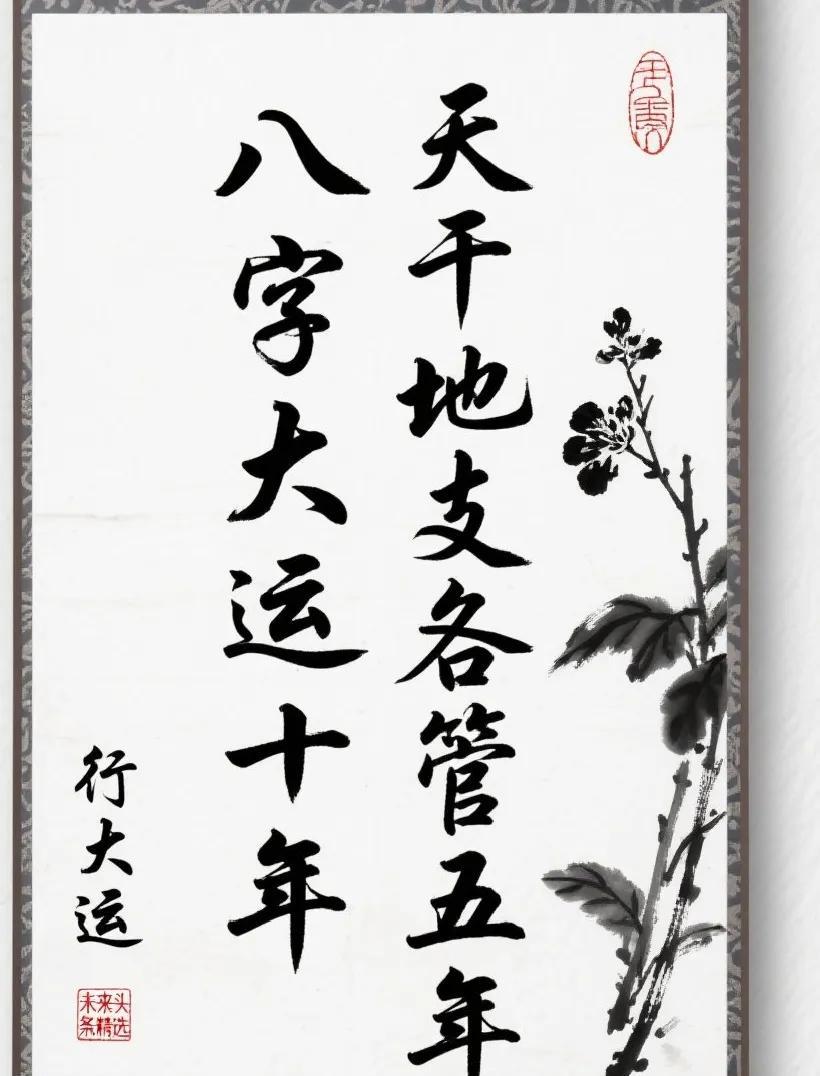 天干地支各管五年
八字大运十年
行大运
未来头
条精选